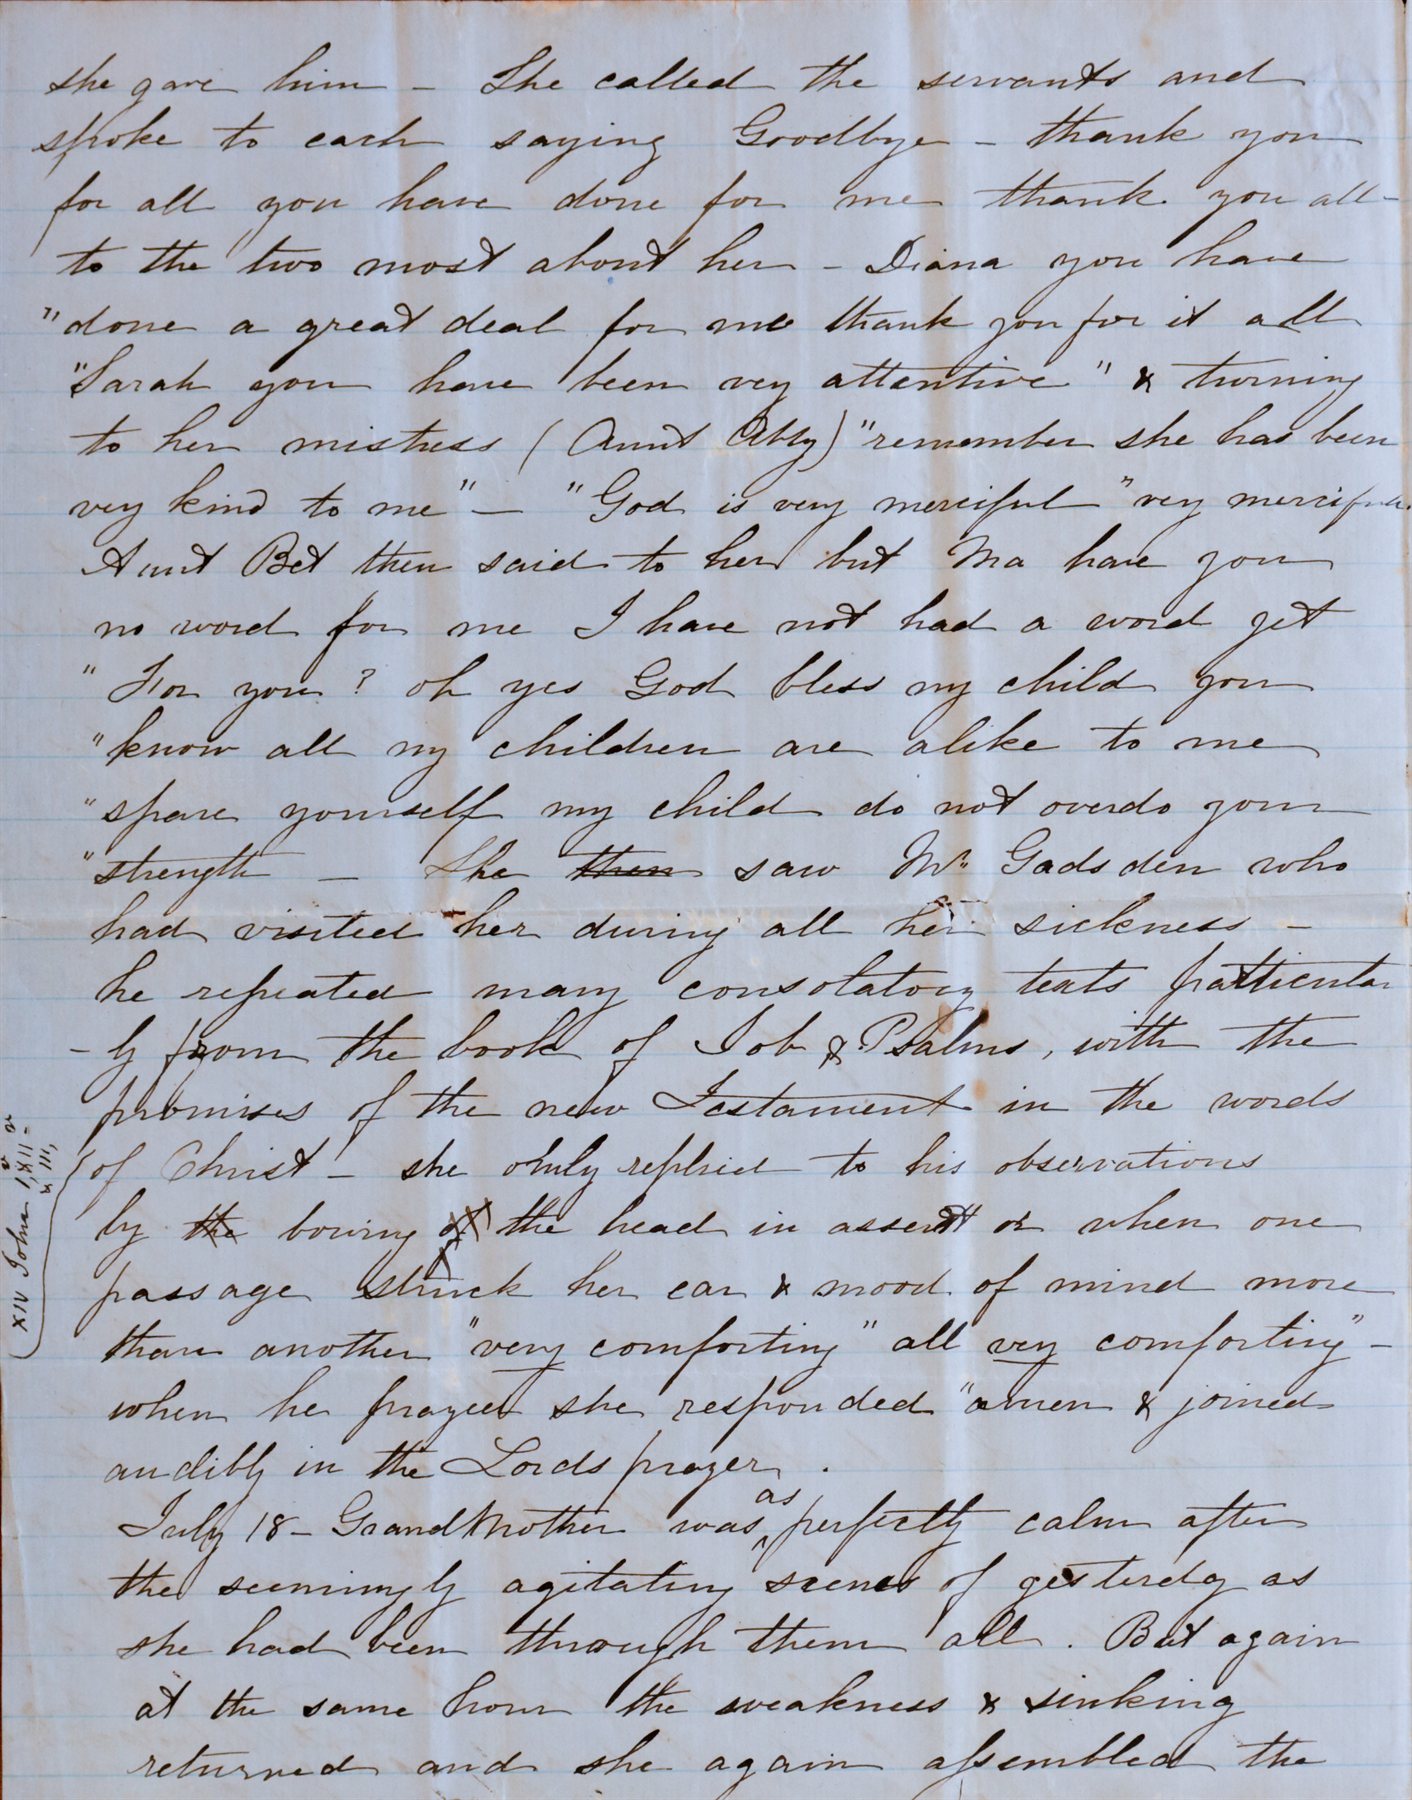 she gave him – She called the servants and
spoke to each saying Goodbye – thank you
for all you have done for me thank you all –
to the two most about her – Diana you have
"done a great deal for me thank you for it all
"Sarah you have been very attentive" & turning
to her mistress (Aunt Abby) "remember she has been
very kind to me" – "God is very merciful "very merciful
Aunt Bet then said to her but Ma have you
no word for me I have not had a word yet
"For you? oh yes God bless my child you
"know all my children are alike to me
"spare yourself my child do not overdo your
"strength – She then saw Mr Gadsden who
had visited her during all her sickness –
he repeated many consolatory texts particular
-ly from the book of Job & Psalms, with the
promises of the new Testament in the words
of Christ – she only replied to his observations
by the bowing of the head in assent or when one
passage struck her ear & mood of mind more
than another "very comforting" all very comforting" –
when he prayed she responded "amen & joined
audibly in the Lords prayer.
July 18 – GrandMother was as perfectly calm after
the seemingly agitating scenes of yesterday as
she had been through them all. But again
at the same hour the weakness & sinking
returned and she again assembled the
XIV John 1,
& III,